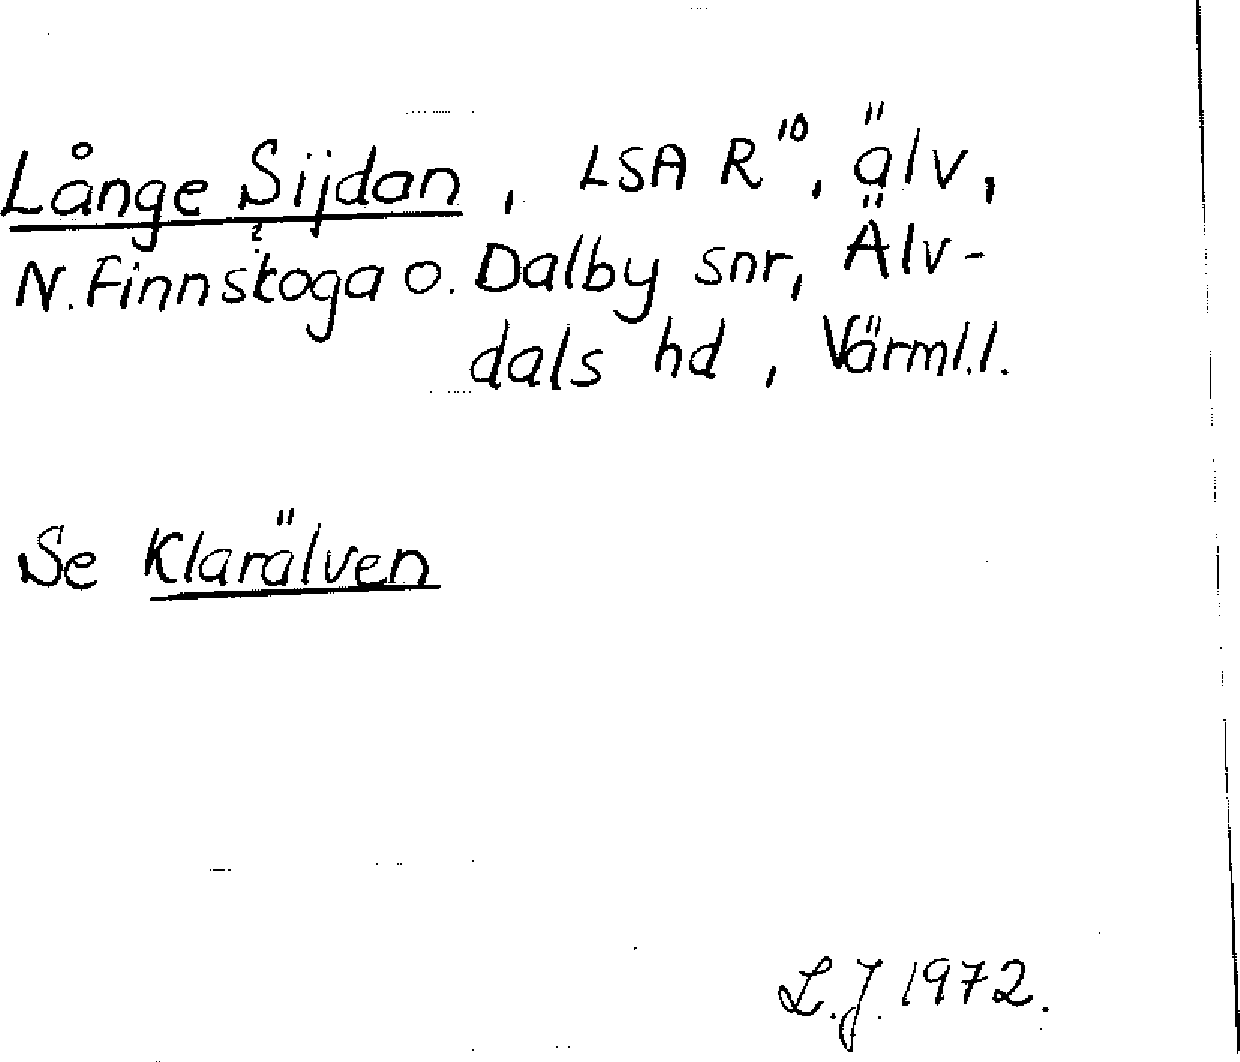 Långe Sijdan, LSA R¹⁰, älv,
N. Finnskoga o. Dalby snr, Älv-
dals hd, Värml.l.
Se Klarälven
L.J. 1972.